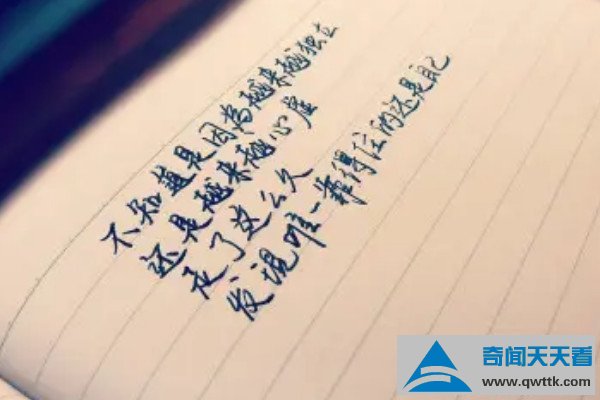 不知道是因为越来越独立
还是越来越心虚
走了这么久
发现唯一靠得住的还是自己
奇闻天天看
www.qwttk.com